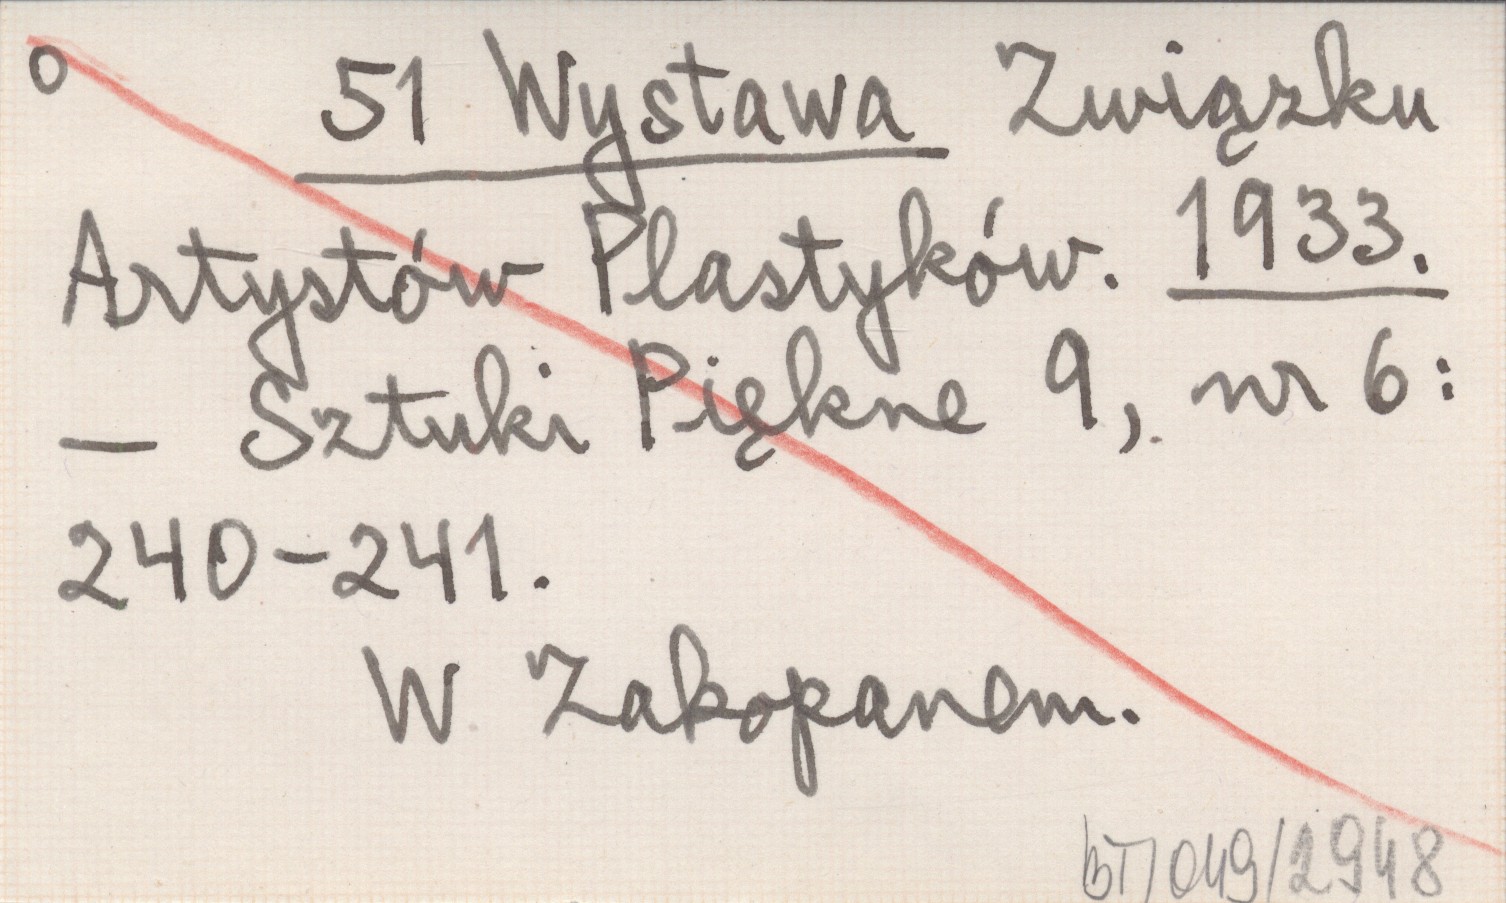 o 51 Wystawa Związku
Artystów Plastyków. 1933.
— Sztuki Piękne 9, nr 6:
240-241.
W Zakopanem.
BT/049/2948